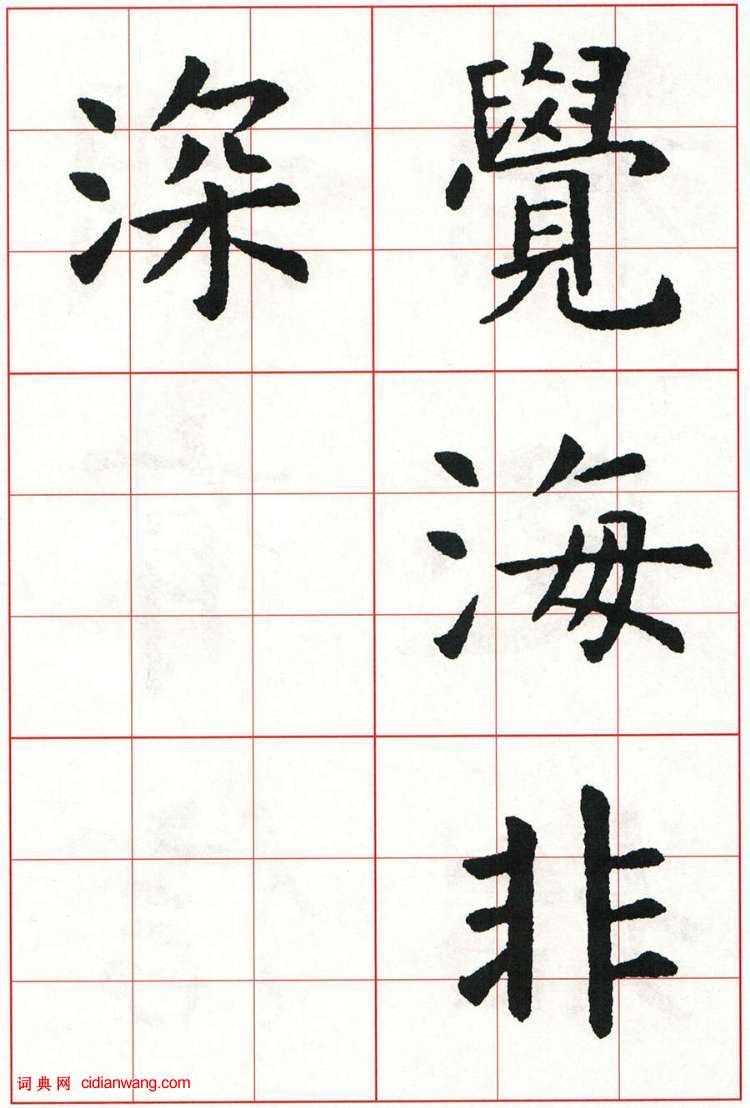 覺海非
深
词典网 cidianwang.com